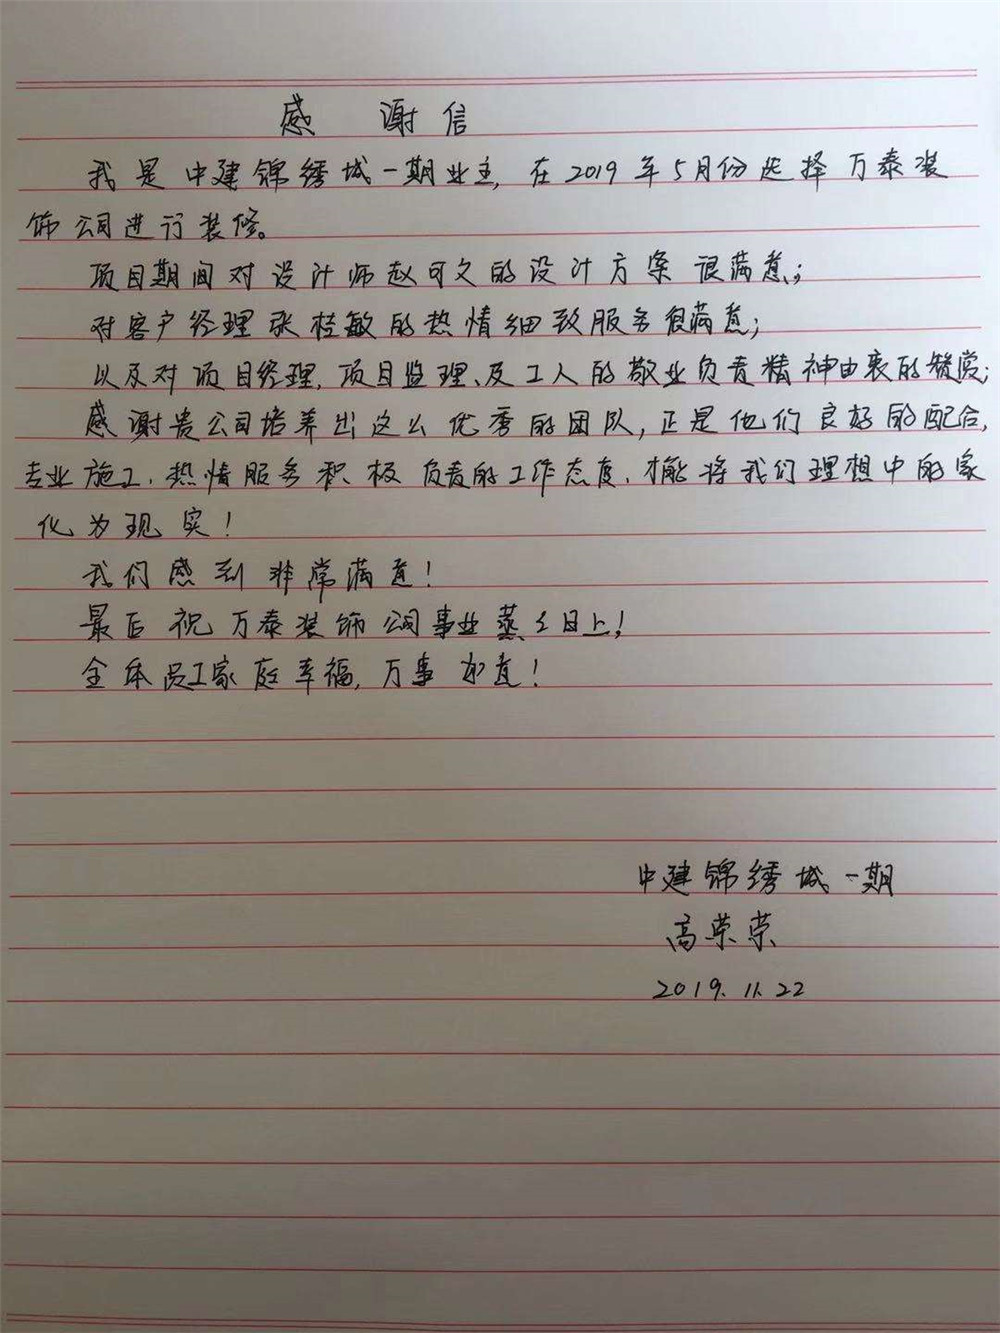 感谢信
我是中建锦绣城一期业主,在2019年5月份选择万泰装
饰公司进行装修。
项目期间对设计师赵可文的设计方案很满意;
对客户经理张桂敏的热情细致服务很满意;
以及对项目经理,项目监理、及工人的敬业负责精神由衷的赞赏;
感谢贵公司培养出这么优秀的团队,正是他们良好的配合,
专业施工、热情服务积极负责的工作态度,才能将我们理想中的家
化为现实!
我们感到非常满意!
最后祝万泰装饰公司事业蒸蒸日上!
全体员工家庭幸福,万事如意!
中建锦绣城一期
高荣荣
2019.11.22